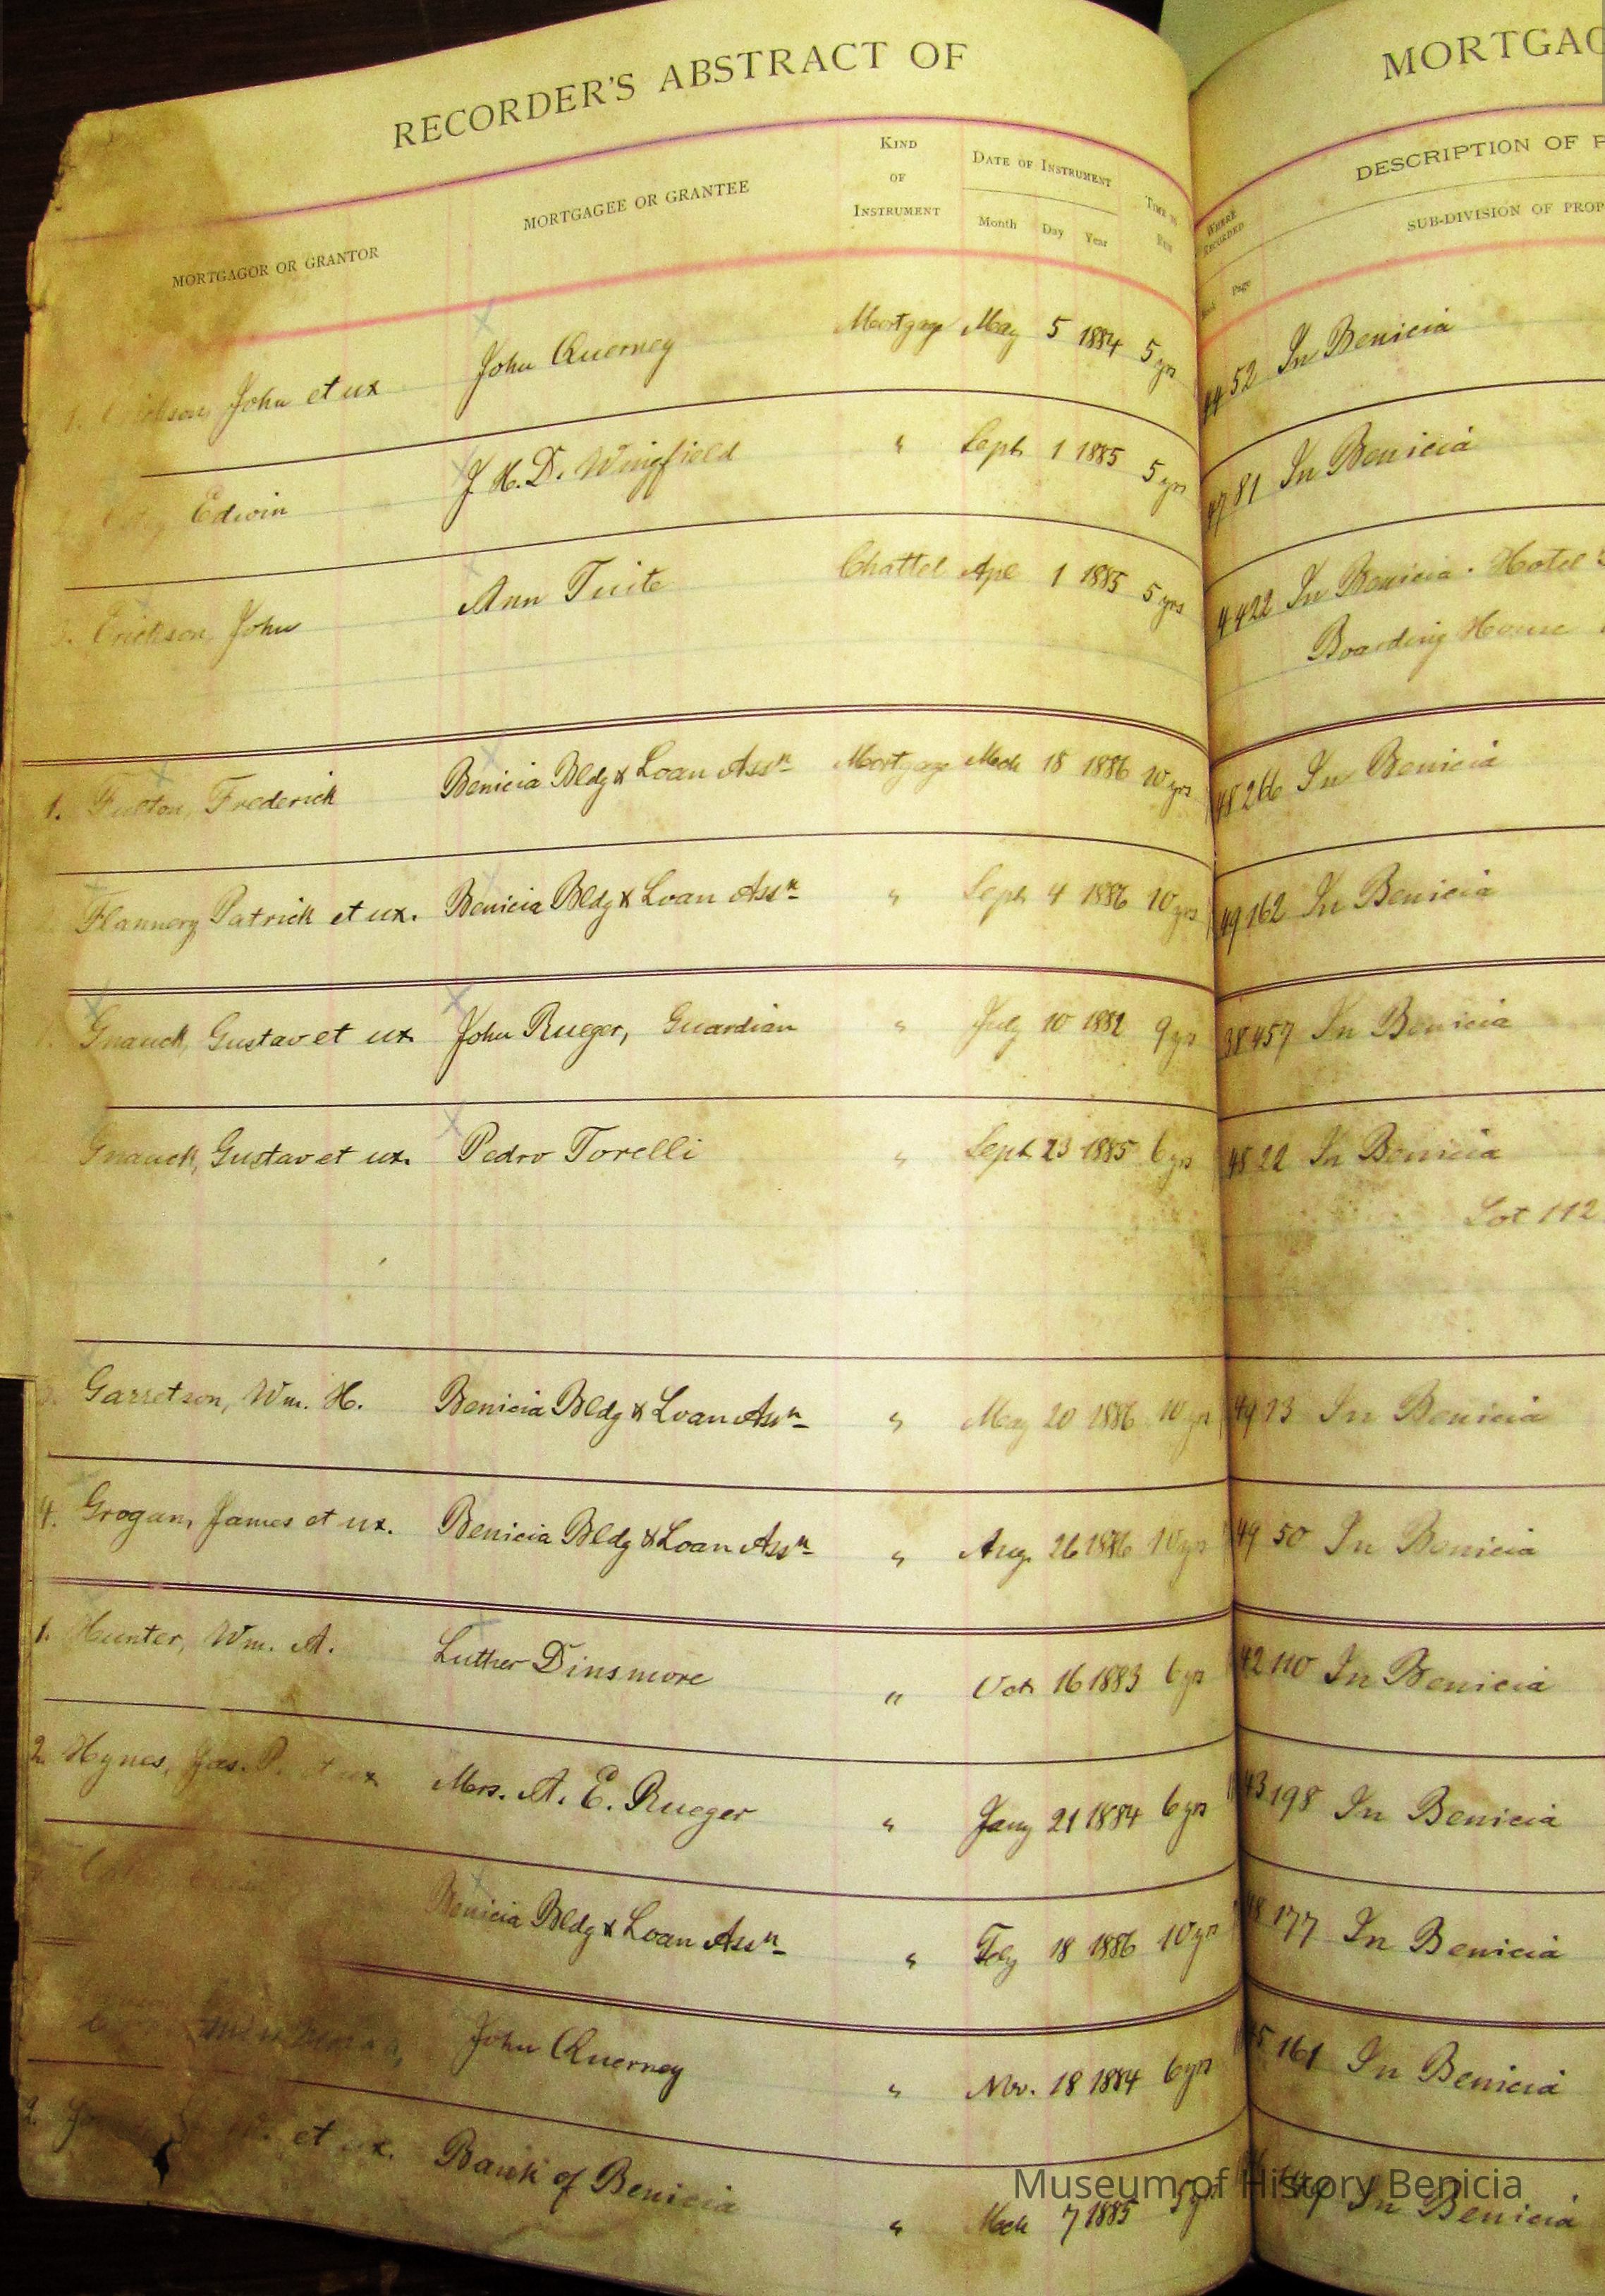 RECORDER'S ABSTRACT OF
MORTGAGOR OR GRANTOR MORTGAGEE OR GRANTEE KIND OF INSTRUMENT DATE OF INSTRUMENT Month Day Year
1. John et ux John Querney Mortgage May 5 1884 5 yrs
Edwin J. H. D. Wingfield " Sept 1 1885 5 yrs
Erickson, John Ann Tuite Chattel Apl 1 1885 5 yrs
1. Frederick Benicia Bldg & Loan Assn Mortgage Mch 18 1886 10 yrs
Flannery Patrick et ux. Benicia Bldg & Loan Assn " Sept 4 1886 10 yrs
Gnauck, Gustav et ux John Rueger, Guardian " July 10 1882 9 yrs
Gnauck, Gustav et ux. Pedro Torelli " Sept 23 1885 6 yrs
Garretson, Wm. H. Benicia Bldg & Loan Assn " May 20 1886 10 yrs
4. Grogan, James et ux. Benicia Bldg & Loan Assn " Aug 26 1886 10 yrs
1. Hunter, Wm. A. Luther Dinsmore " Oct 16 1883 6 yrs
2. Hynes, Jas. P. et ux Mrs. A. E. Rueger " Jany 21 1884 6 yrs
Benicia Bldg & Loan Assn " Feby 18 1886 10 yrs
John Querney " Nov. 18 1884 6 yrs
2. et ux. Bank of Benicia " Mch 7 1885 5 yrs
MORTGAG
DESCRIPTION OF P
WHERE RECORDED SUB-DIVISION OF PROP
Page
44 52 In Benicia
47 81 In Benicia
44 22 In Benicia. Hotel
Boarding House
48 266 In Benicia
49 162 In Benicia
38 457 In Benicia
48 22 In Benicia
Lot 112
49 23 In Benicia
49 50 In Benicia
42 110 In Benicia
43 198 In Benicia
177 In Benicia
161 In Benicia
In Benicia
Museum of History Benicia